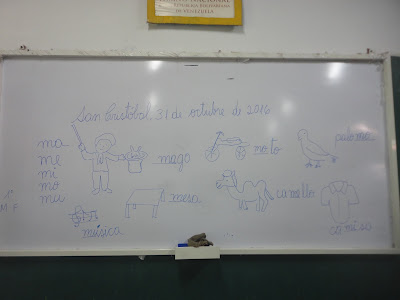 REPÚBLICA BOLIVARIANA
DE VENEZUELA
San Cristóbal, 31 de octubre de 2016
ma
me
mi
mo
mu
mago
moto
paloma
mesa
camello
música
camisa
M.F.